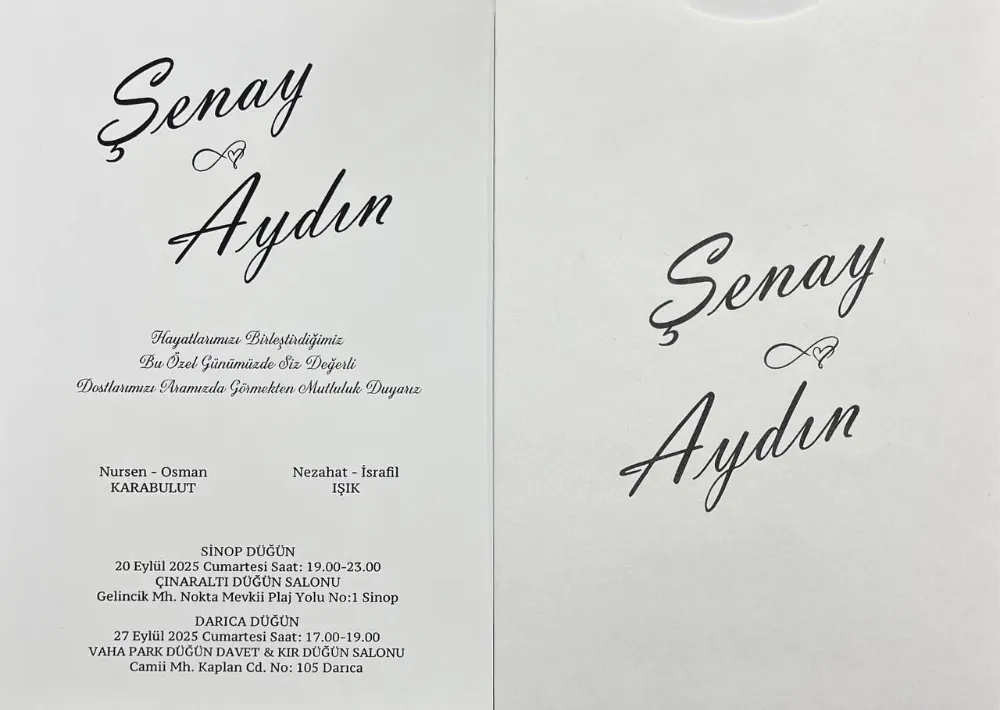 Şenay
Aydın
Hayatlarımızı Birleştirdiğimiz
Bu Özel Günümüzde Siz Değerli
Dostlarımızı Aramızda Görmekten Mutluluk Duyarız
Nursen - Osman
KARABULUT
Nezahat - İsrafil
IŞIK
SİNOP DÜĞÜN
20 Eylül 2025 Cumartesi Saat: 19.00-23.00
ÇINARALTI DÜĞÜN SALONU
Gelincik Mh. Nokta Mevkii Plaj Yolu No:1 Sinop
DARICA DÜĞÜN
27 Eylül 2025 Cumartesi Saat: 17.00-19.00
VAHA PARK DÜĞÜN DAVET & KIR DÜĞÜN SALONU
Camii Mh. Kaplan Cd. No: 105 Darıca
Şenay
Aydın